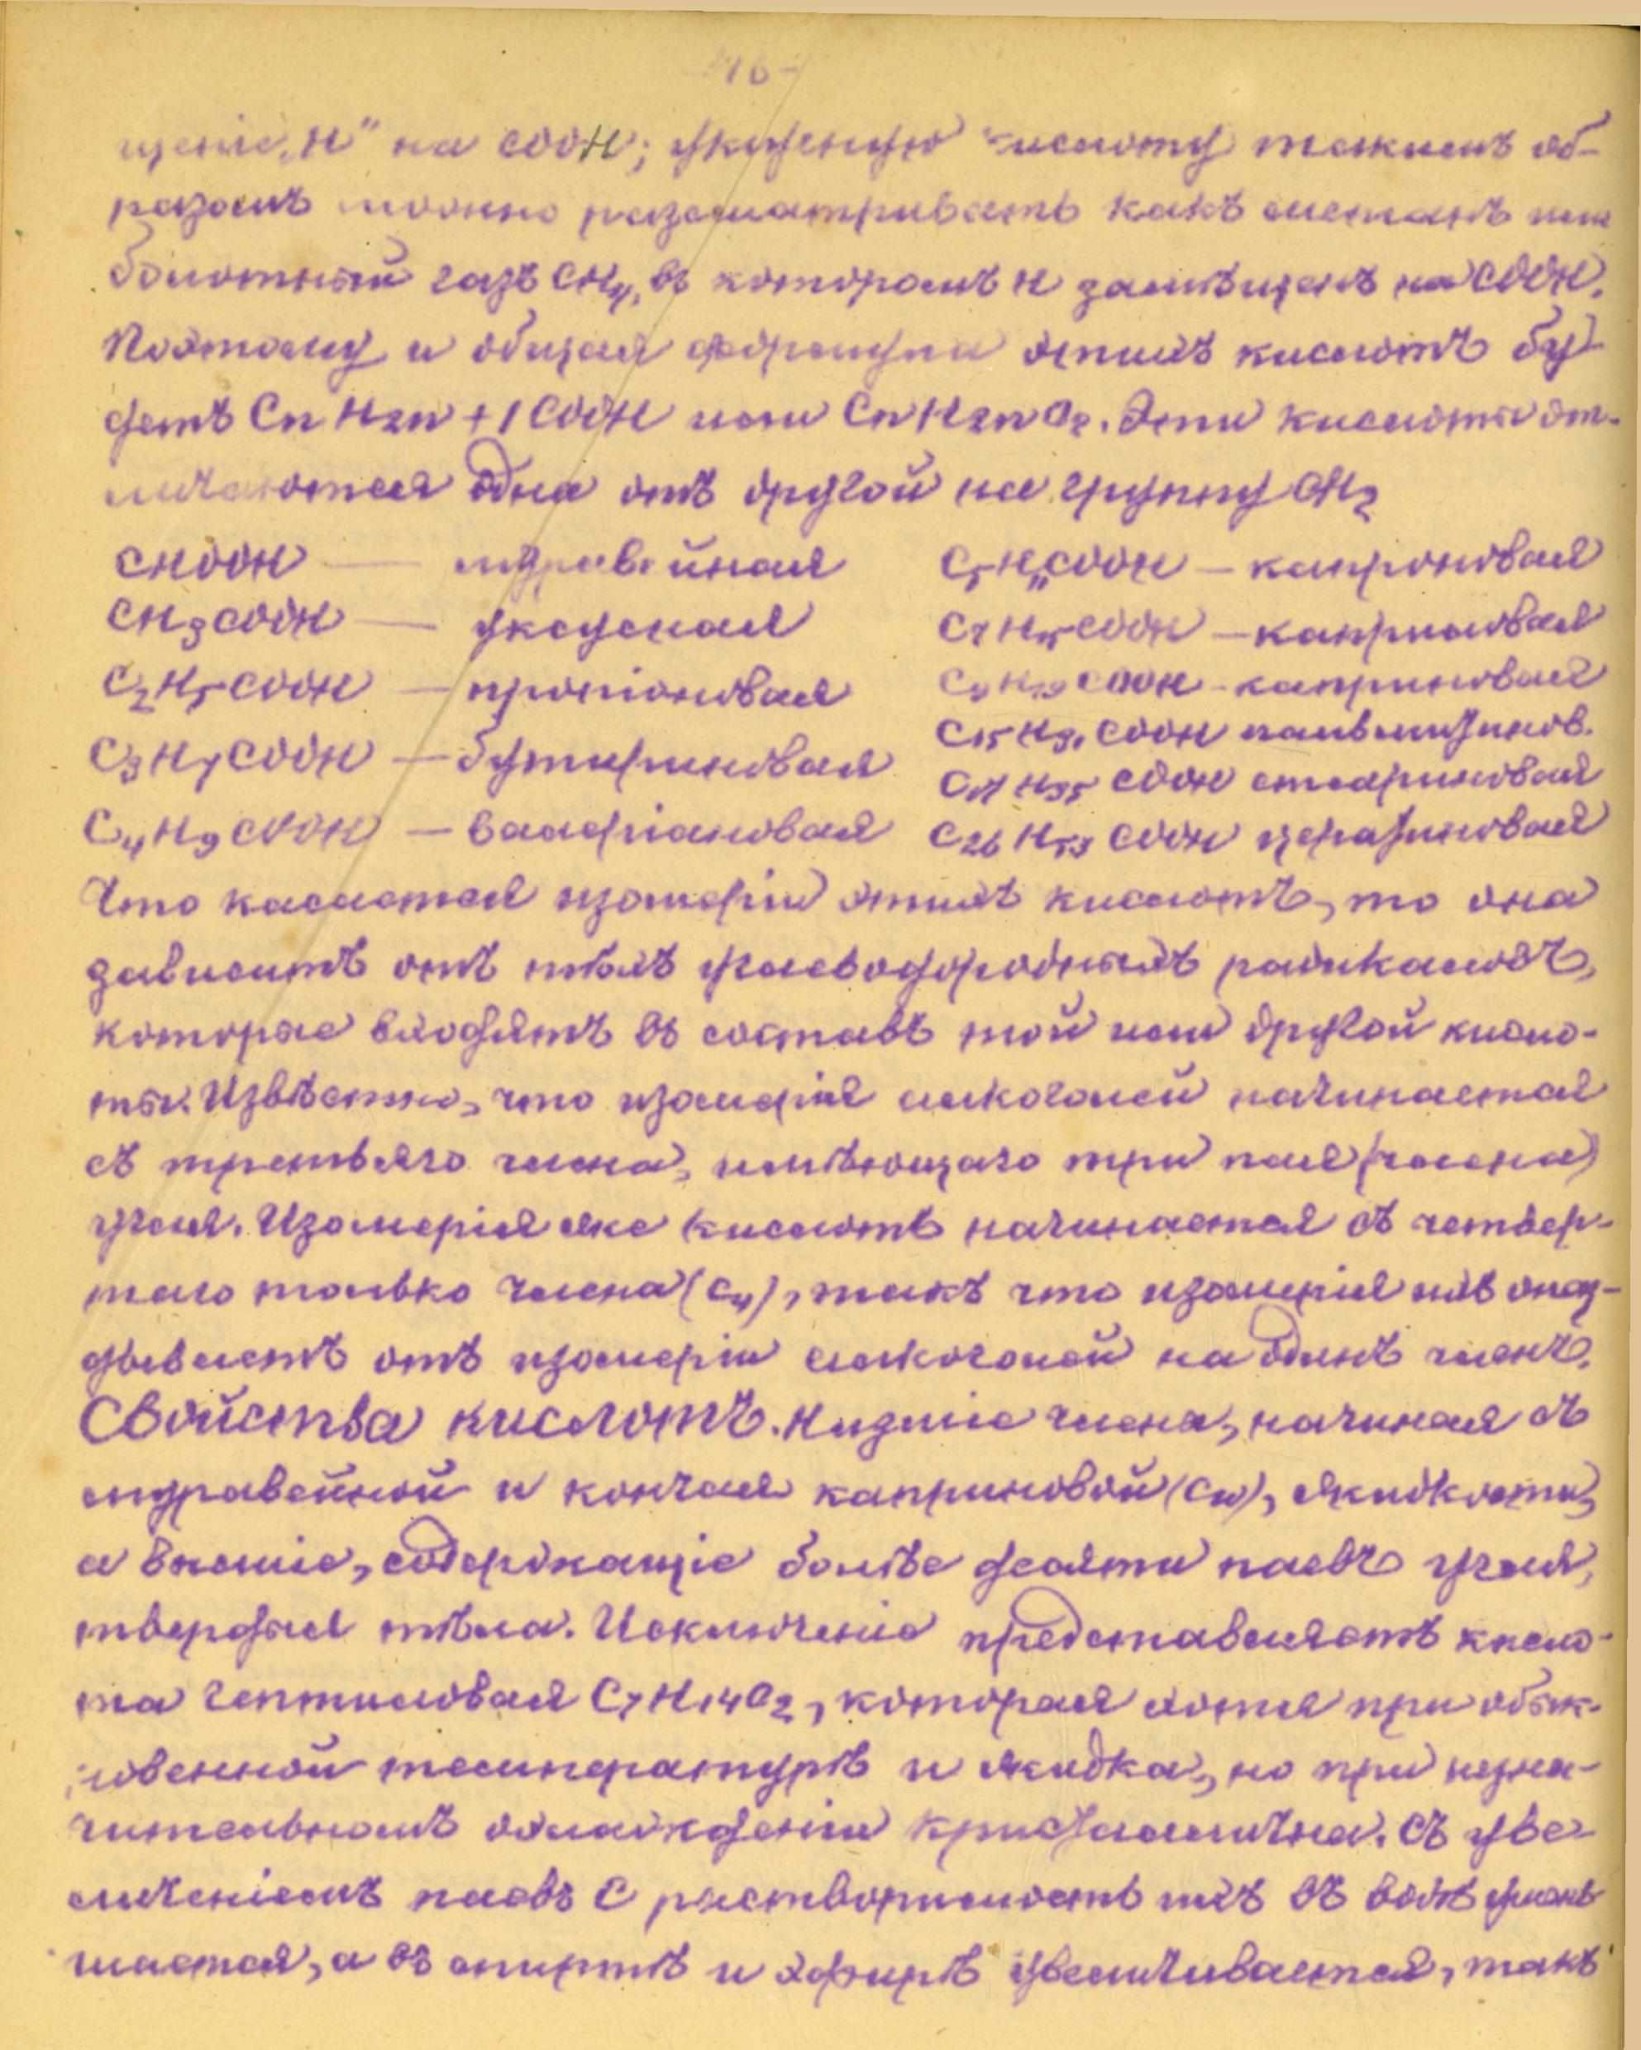 16-
щеніе „H" на COOH; уксусную кислоту такимъ об-
разомъ можно разсматривать какъ метанъ или
болотный газъ CH4, въ которомъ H замѣщенъ на COOH.
Поэтому и общая формула этихъ кислотъ бу-
детъ CnH2n+1COOH или CnH2nO2. Эти кислоты от-
личаются одна отъ другой на группу CH2
CHOOH — муравьиная
CH3COOH — уксусная
C2H5COOH — пропіоновая
C3H7COOH — бутириновая
C4H9COOH — валеріановая
C5H11COOH — капроновая
C7H15COOH — каприловая
C9H19COOH - каприновая
C15H31COOH пальмитинов.
C17H35COOH стеариновая
C26H53COOH церотиновая
Что касается изомеріи этихъ кислотъ, то она
зависитъ отъ тѣхъ углеводородныхъ радикаловъ,
которые входятъ въ составъ той или другой кисло-
ты. Извѣстно, что изомерія алкоголей начинается
съ третьяго члена, имѣющаго три пая (члена)
угля. Изомерія же кислотъ начинается съ четвер-
таго только члена (C4), такъ что изомерія ихъ опаз-
дываетъ отъ изомеріи алкоголей на одинъ членъ.
Свойства кислотъ. Низшіе члены, начиная съ
муравейной и кончая каприновой (C10), жидкости,
а высшіе, содержащіе болѣе десяти паевъ угля,
твердыя тѣла. Исключеніе представляетъ кисло-
та гептиловая C7H14O2, которая хотя при обык-
новенной температурѣ и жидка, но при незна-
чительномъ охлажденіи кристаллична. Съ уве-
личеніемъ паевъ C растворимость ихъ въ водѣ умень
шается, а въ спиртѣ и эфирѣ увеличивается, такъ